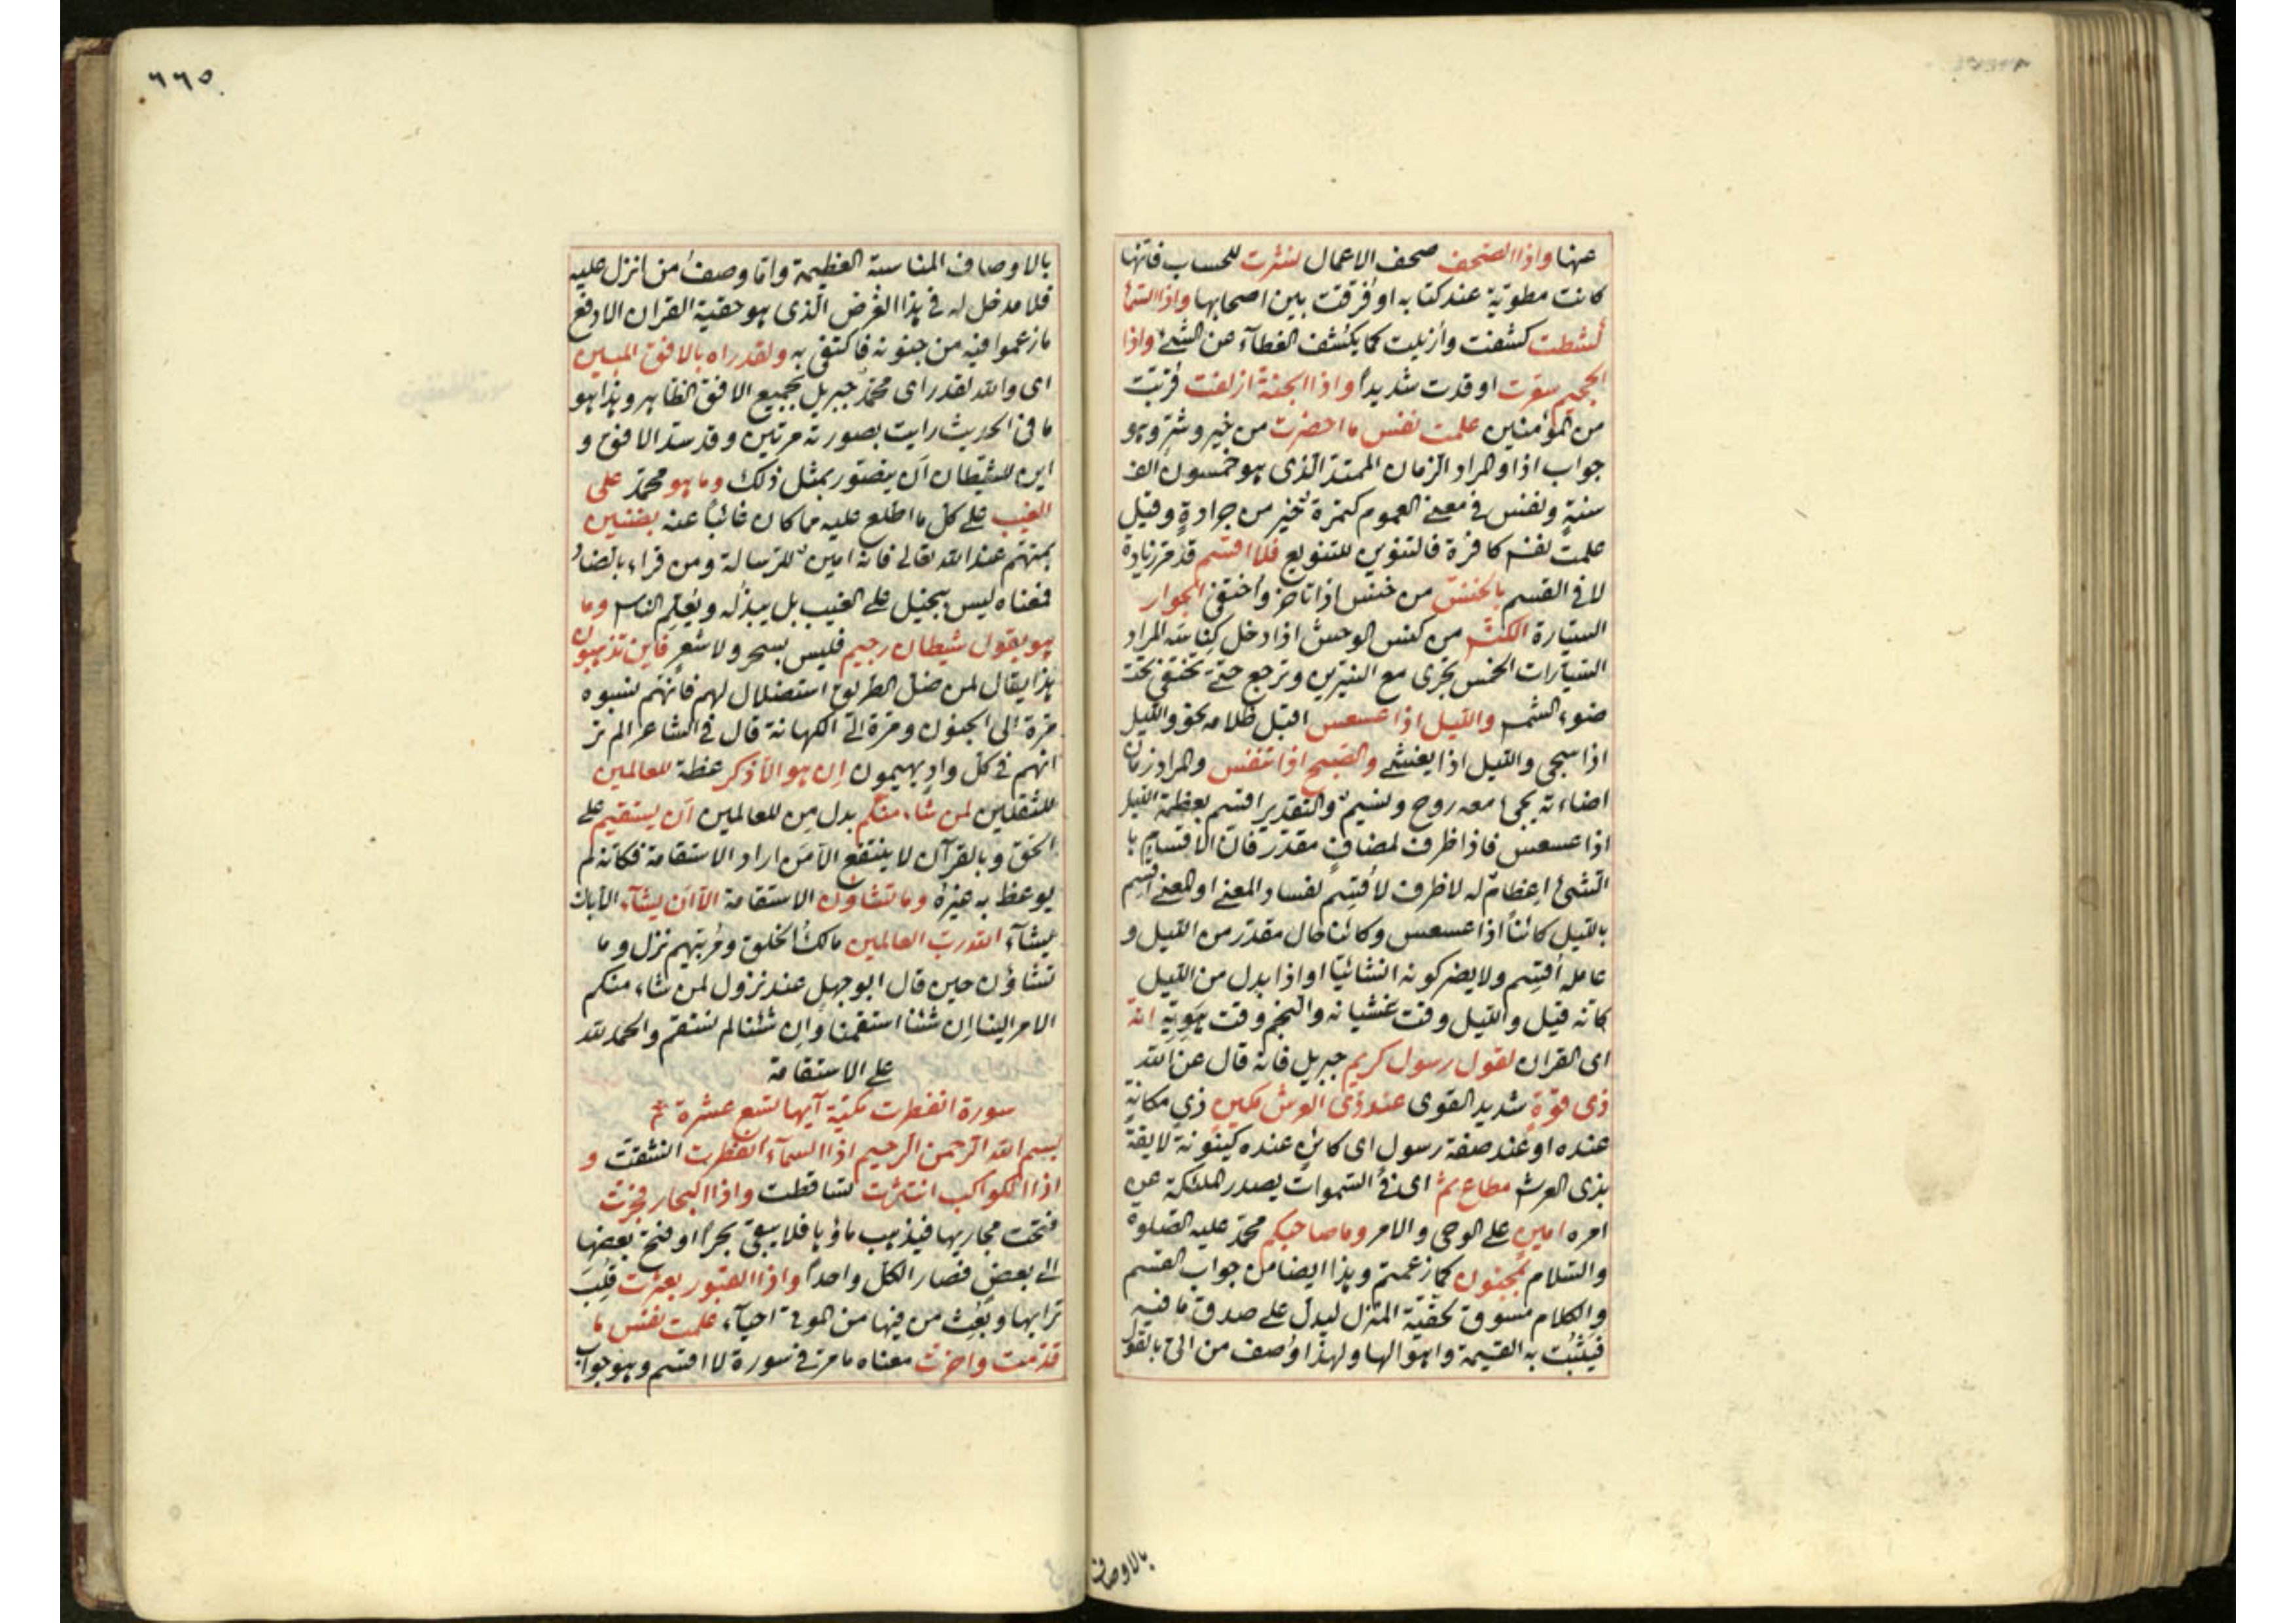 عنها واذا الصحف صحف الاعمال نشرت للحساب فانها
كانت مطوية عند كتابه او فرقت بين اصحابها واذا السماء
كشطت كشفت وازيلت كما يكشف الغطآء عن الشئ واذا
الجحيم سعرت اوقدت شديدا واذا الجنة ازلفت قربت
من المؤمنين علمت نفس ما احضرت من خير وشر وهو
جواب اذا والمراد الزمان الممتد الذى هو خمسون الف
سنة ونفس فى معنى العموم كتمرة خير من جرادة وقيل
علمت نفس كافرة فالتنوين للتنويع فلا اقسم قد مر زيادة
لا فى القسم بالخنس من خنس اذا تاخر واختفى الجوار
السيارة الكنس من كنس الوحش اذا دخل كناسه المراد
السيارات الخمس تجرى مع النيرين وترجع حتى تختفى تحت
ضوء الشمس والليل اذا عسعس اقبل ظلامه نحو والليل
اذا سجى والليل اذا يغشى والصبح اذا تنفس والمراد زمان
اضاءته يجئ معه روح ونسيم والتقدير اقسم بعظمة الليل
اذا عسعس فاذا ظرف لمضاف مقدر فان الاقسام با
لشئ اعظام له لا ظرف لاقسم لفساد المعنى او المعنى اقسم
بالليل كائنا اذا عسعس وكائنا حال مقدر من الليل و
عامله اقسم ولا يضر كونه انشائيا او اذا بدل من الليل
كانه قيل والليل وقت غشيانه والنجم وقت هويه انه
اى القران لقول رسول كريم جبريل فانه قال عن الله
ذى قوة شديد القوى عند ذى العرش مكين ذي مكانة
عنده او عند صفة رسول اى كائن عنده كينونة لايقة
بذى العرش مطاع ثم اى فى السموات يصدر الملئكة عن
امره امين على الوحى والامر وما صاحبكم محمد عليه الصلوة
والسلام بمجنون كما زعمتم وهذا ايضا من جواب القسم
والكلام مسوق لحقية المنزل ليدل على صدق ما فيه
فيثبت به القيمة واهوالها ولهذا وصف من اتى بالقول
بالاوصاف
٦٦٥
بالاوصاف المناسبة العظيمة واما وصف من انزل عليه
فلا مدخل له فى هذا الغرض الذى هو حقية القران الا دفع
ما زعموا فيه من جنونه فاكتفى به ولقد راه بالافق المبين
اى والله لقد راى محمد جبريل بجميع الافق الظاهر وهذا هو
ما فى الحديث رايت بصورته مرتين وقد سد الافق و
اين للشيطان ان يتصور بمثل ذلك وما هو محمد على
الغيب على كل ما اطلع عليه مما كان غائبا عنه بضنين
بمتهم عند الله تعالى فانه امين للرسالة ومن قراء بالضاد
فمعناه ليس ببخيل على الغيب بل يبذله ويعلم الناس وما
هو بقول شيطان رجيم فليس بسحر ولا شعر فاين تذهبون
هذا يقال لمن ضل الطريق استضلال لهم فانهم نسبوه
مرة الى الجنون ومرة الى الكهانة قال فى الشاعر الم تر
انهم فى كل واد يهيمون ان هو الا ذكر عظة للعالمين
للثقلين لمن شاء منكم بدل من للعالمين ان يستقيم على
الحق وبالقرآن لا ينتفع الا من اراد الاستقامة فكانه لم
يوعظ به غيره وما تشاؤن الاستقامة الا ان يشآء الا بان
يشآء الله رب العالمين مالك الخلق ومربيهم نزل وما
تشاؤن حين قال ابو جهل عند نزول لمن شاء منكم
الامر الينا ان شئنا استقمنا وان شئنا لم نستقم والحمد لله
على الاستقامة
سورة انفطرت مكية آيها تسع عشرة
بسم الله الرحمن الرحيم اذا السمآء انفطرت انشقت و
اذا الكواكب انتثرت تساقطت واذا البحار فجرت
فتحت مجاريها فيذهب ماؤها فلا يبقى بحر او فتح بعضها
الى بعض فصار الكل واحدا واذا القبور بعثرت قلب
ترابها وبعث من فيها من الموتى احيآء علمت نفس ما
قدمت واخرت معناه ما مر فى سورة لا اقسم وهو جواب